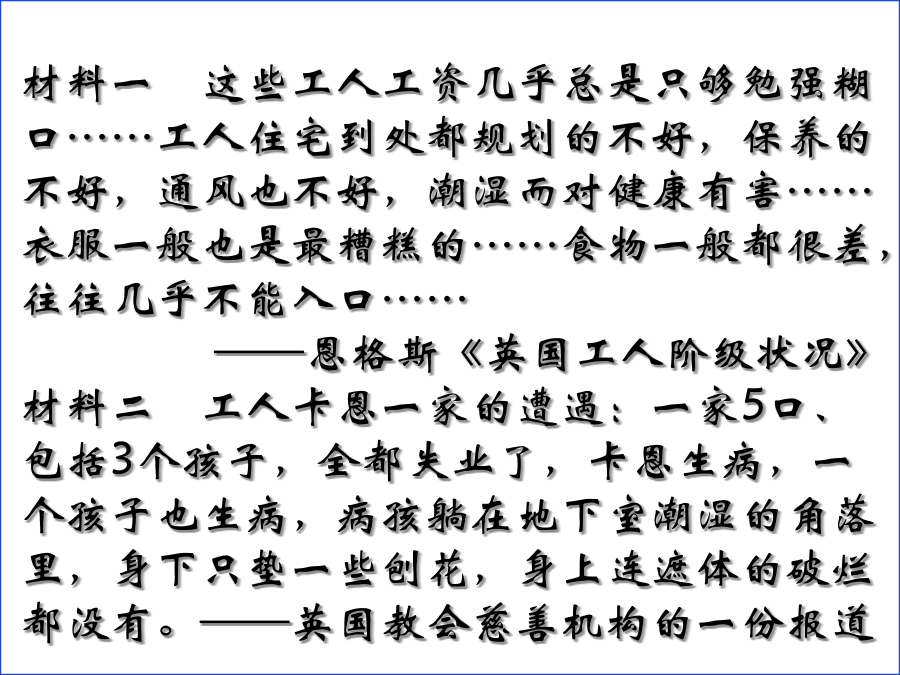 材料一　这些工人工资几乎总是只够勉强糊
口……工人住宅到处都规划的不好，保养的
不好，通风也不好，潮湿而对健康有害……
衣服一般也是最糟糕的……食物一般都很差，
往往几乎不能入口……
——恩格斯《英国工人阶级状况》
材料二　工人卡恩一家的遭遇：一家5口、
包括3个孩子，全都失业了，卡恩生病，一
个孩子也生病，病孩躺在地下室潮湿的角落
里，身下只垫一些刨花，身上连遮体的破烂
都没有。——英国教会慈善机构的一份报道